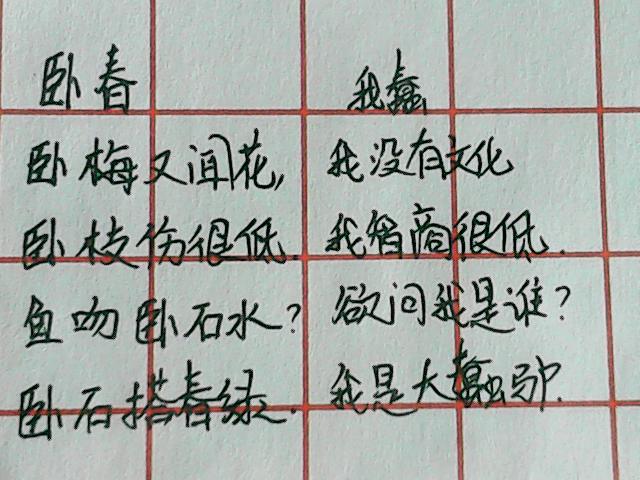 卧春
卧梅又闻花,
卧枝伤很低.
鱼吻卧石水?
卧石搭春绿.
我蠢
我没有文化
我智商很低.
欲问我是谁?
我是大蠢驴.